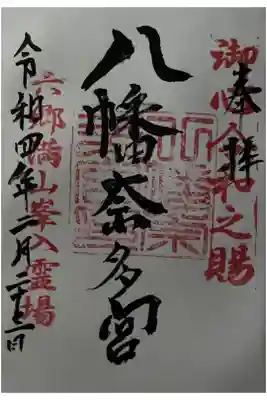 奉拝
令和之賜
八幡奈多宮
六郷満山峯入霊場
令和四年二月二十三日